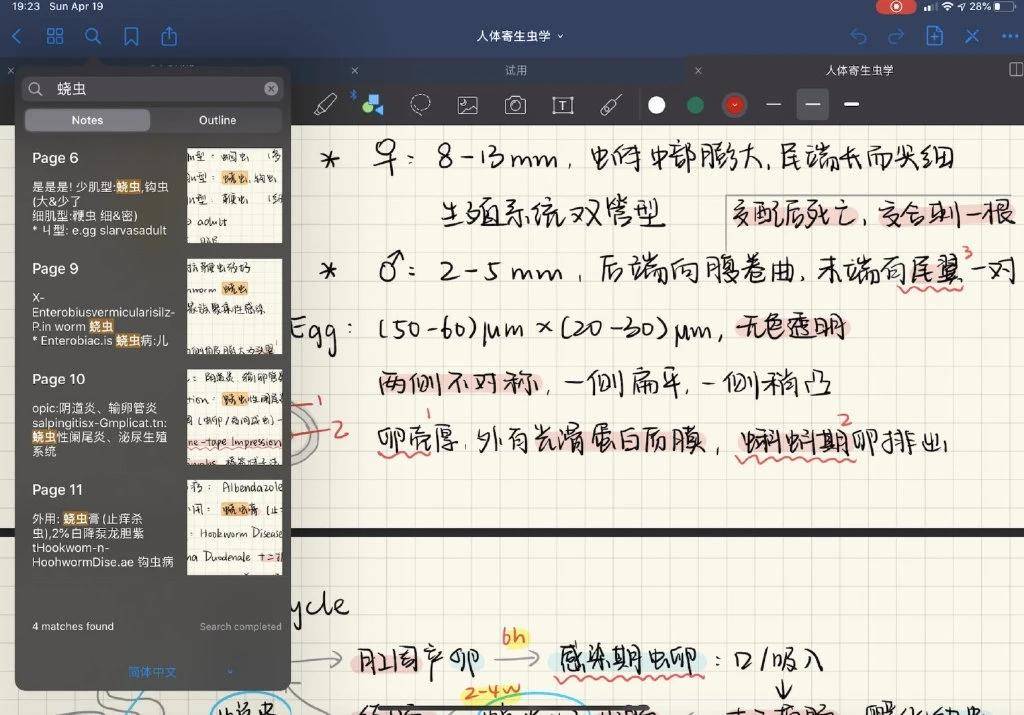 19:23 Sun Apr 19
28%
人体寄生虫学
试用
人体寄生虫学
蛲虫
Notes
Outline
Page 6
是是是! 少肌型:蛲虫,钩虫
(大&少了
细肌型:鞭虫 细&密)
* 丩型: e.gg slarvasadult
Page 9
X-
Enterobiusvermicularisilz-
P.in worm 蛲虫
* Enterobiac.is 蛲虫病:儿
Page 10
opic:阴道炎、输卵管炎
salpingitisx-Gmplicat.tn:
蛲虫性阑尾炎、泌尿生殖
系统
Page 11
外用: 蛲虫膏 (止痒杀
虫),2%白降汞龙胆紫
tHookwom-n-
HoohwormDise.ae 钩虫病
4 matches found
Search completed
简体中文
* ♀: 8-13mm, 虫体中部膨大, 尾端长而尖细
生殖系统双管型
交配后死亡, 交合刺一根
* ♂: 2-5mm, 后端向腹卷曲, 末端有尾翼3一对
Egg: (50-60)μm×(20-30)μm, 无色透明
两侧不对称, 一侧扁平, 一侧稍凸
1
2
卵壳厚1, 外有光滑蛋白质膜, 蝌蚪期2卵排出
ycle
肛周产卵 6h 感染期虫卵: 口/吸入
2-4w